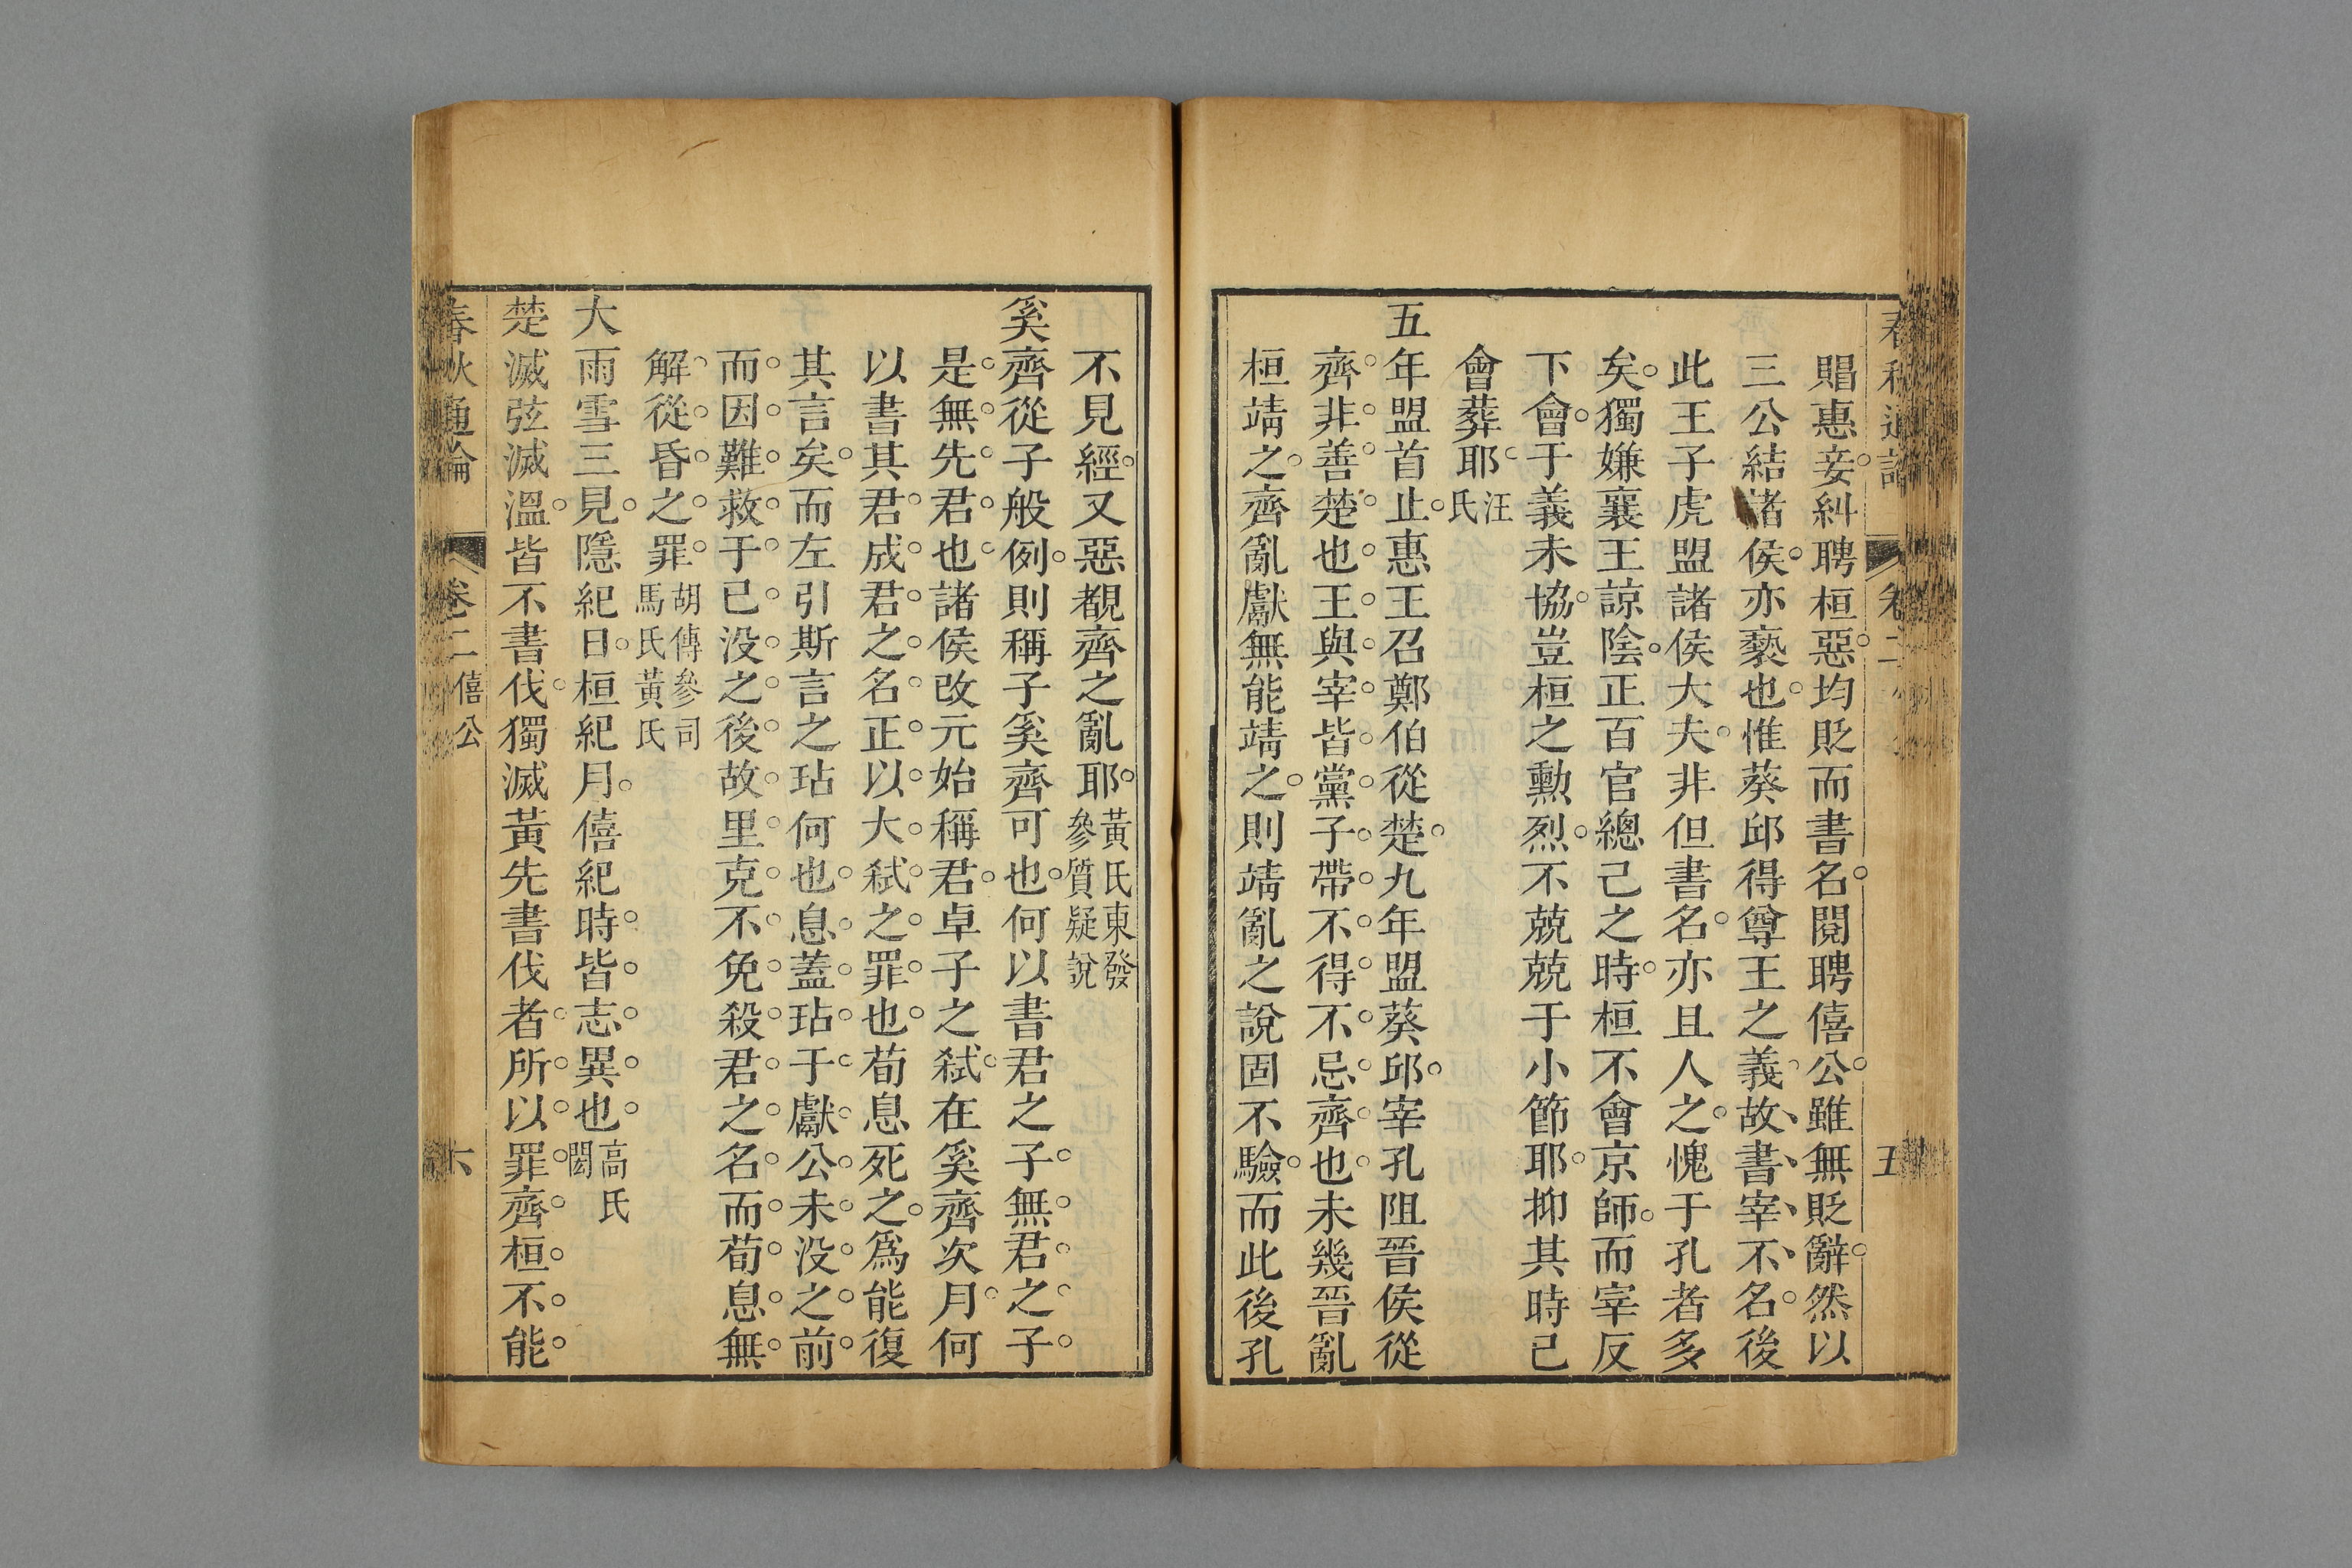 賵惠妾糾聘桓惡均貶而書名閱聘僖公雖無貶辭然以
三公結諸侯亦褻也惟葵邱得尊王之義故書宰不名後
此王子虎盟諸侯大夫非但書名亦且人之愧于孔者多
矣獨嫌襄王諒陰正百官總己之時桓不會京師而宰反
下會于義未協豈桓之勳烈不兢兢于小節耶抑其時已
會葬耶汪氏
五年盟首止惠王召鄭伯從楚九年盟葵邱宰孔阻晉侯從
齊非善楚也王與宰皆黨子帶不得不忌齊也未幾晉亂
桓靖之齊亂獻無能靖之則靖亂之說固不驗而此後孔
不見經又惡覩齊之亂耶黃氏東發參質疑說
奚齊從子般例則稱子奚齊可也何以書君之子無君之子
是無先君也諸侯改元始稱君卓子之弒在奚齊次月何
以書其君成君之名正以大弒之罪也荀息死之爲能復
其言矣而左引斯言之玷何也息蓋玷于獻公未没之前
而因難救于已没之後故里克不免殺君之名而荀息無
解從昏之罪胡傳參司馬氏黃氏
大雨雪三見隱紀日桓紀月僖紀時皆志異也高氏閌
楚滅弦滅溫皆不書伐獨滅黃先書伐者所以罪齊桓不能
春秋通論 卷二 僖公 六